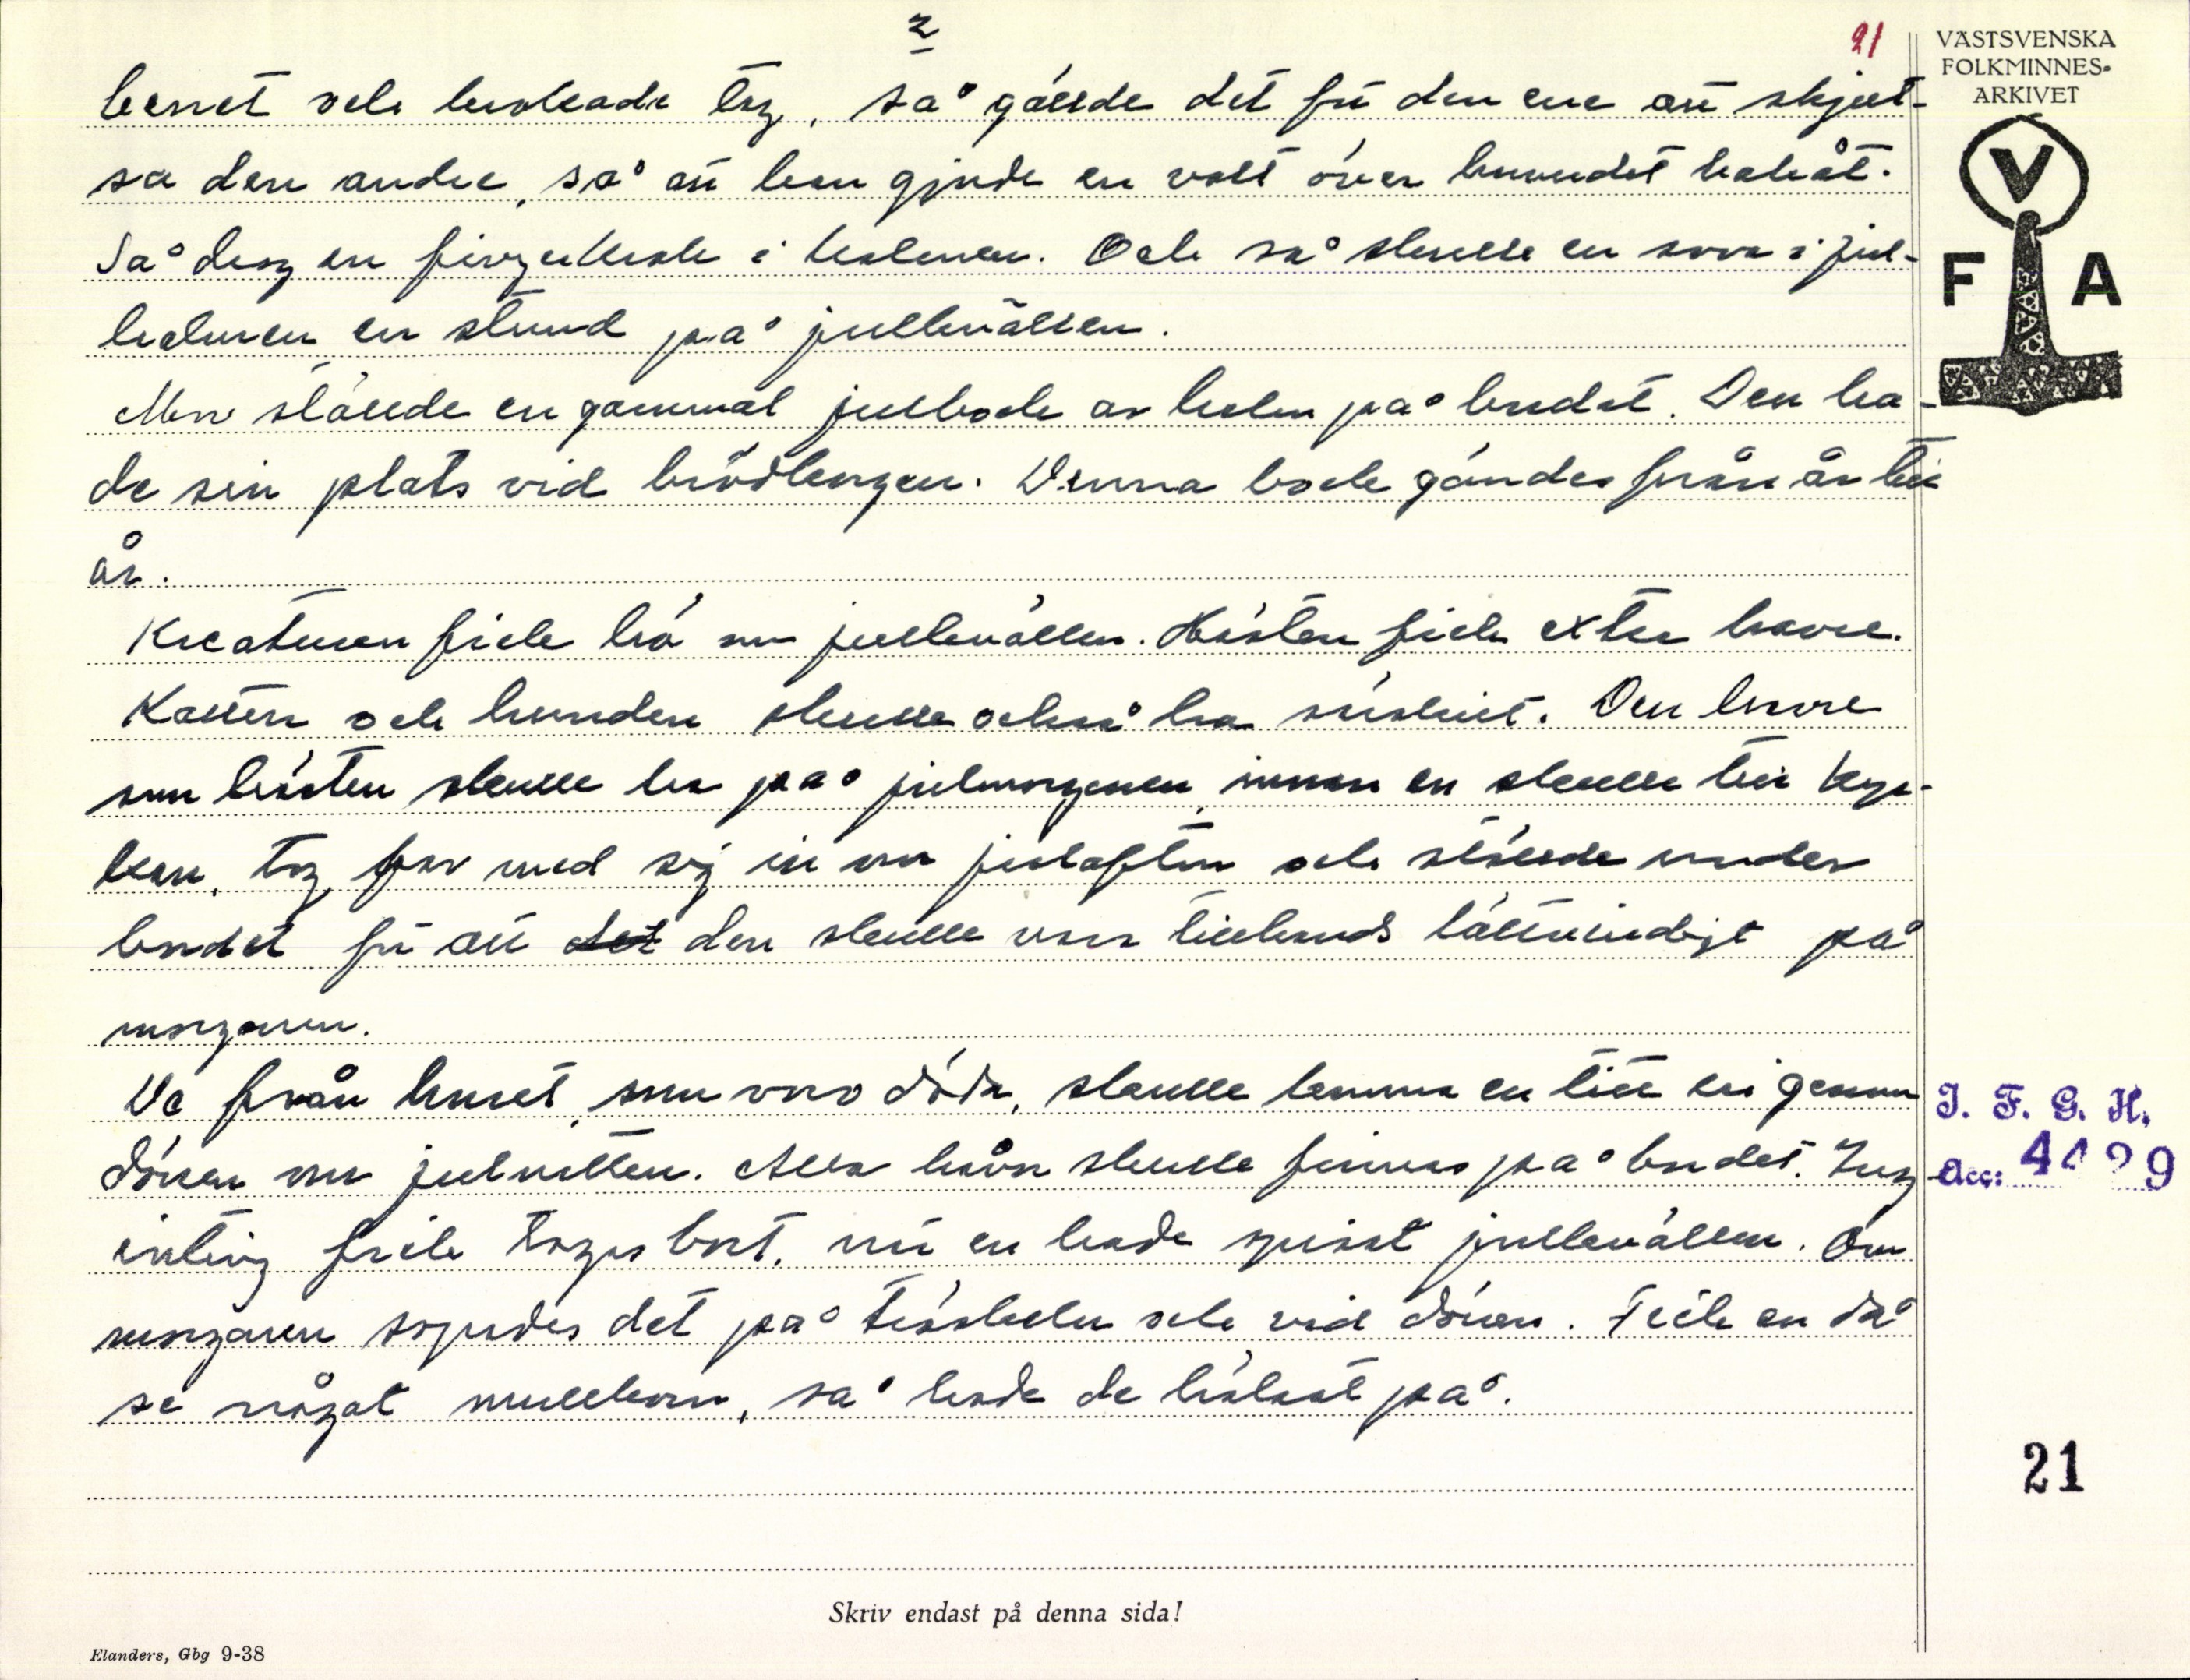 2
21
VÄSTSVENSKA
FOLKMINNES-
ARKIVET
V
F A
benet och krokade tog, så gällde det för den ene att skjut-
sa den andre, så att han gjorde en volt över huvudet bakåt.
Så drog en fingerkrok i halmen. Och så skulle en sova i jul-
halmen en stund på julkvällen.
Men ställde en gammal julbock av halm på bordet. Den ha-
de sin plats vid brödhögen. Denna bock gömdes från år till
år.
Kreaturen fick hö om julkvällen. Hästen fick extra havre.
Katten och hunden skulle också ha särskilt. Den havre
som hästen skulle ha på julmorgonen, innan en skulle till kyr-
kan, tog far med sig in om julafton och ställde under
bordet för att den skulle vara tillhands lättvindigt på
morgonen.
De från huset, som voro döda, skulle komma en titt in genom
dören om julnatten. Alla ljusen skulle finnas på bordet. Ing-
enting fick tagas bort, när en hade spisat julkvällen. Om
morgonen sopades det på tröskeln och vid dören. Fick en då
se något mullkorn, så hade de hälsat på.
I. F. G. H.
Acc: 4429
21
Skriv endast på denna sida!
Elanders, Gbg 9-38